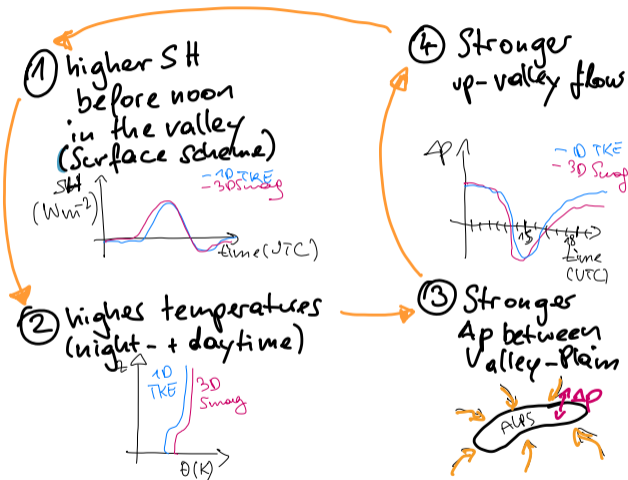 1 higher SH
before noon
in the valley
(Surface scheme)
SH
(Wm-2)
- 1D TKE
- 3D Smag
time (UTC)
2 higher temperatures
(night- + daytime)
z
1D
TKE
3D
Smag
θ(K)
3 Stronger
Δp between
Valley-Plain
ALPS
Δp
4 Stronger
up-valley flows
Δp
- 1D TKE
- 3D Smag
15
time
(UTC)